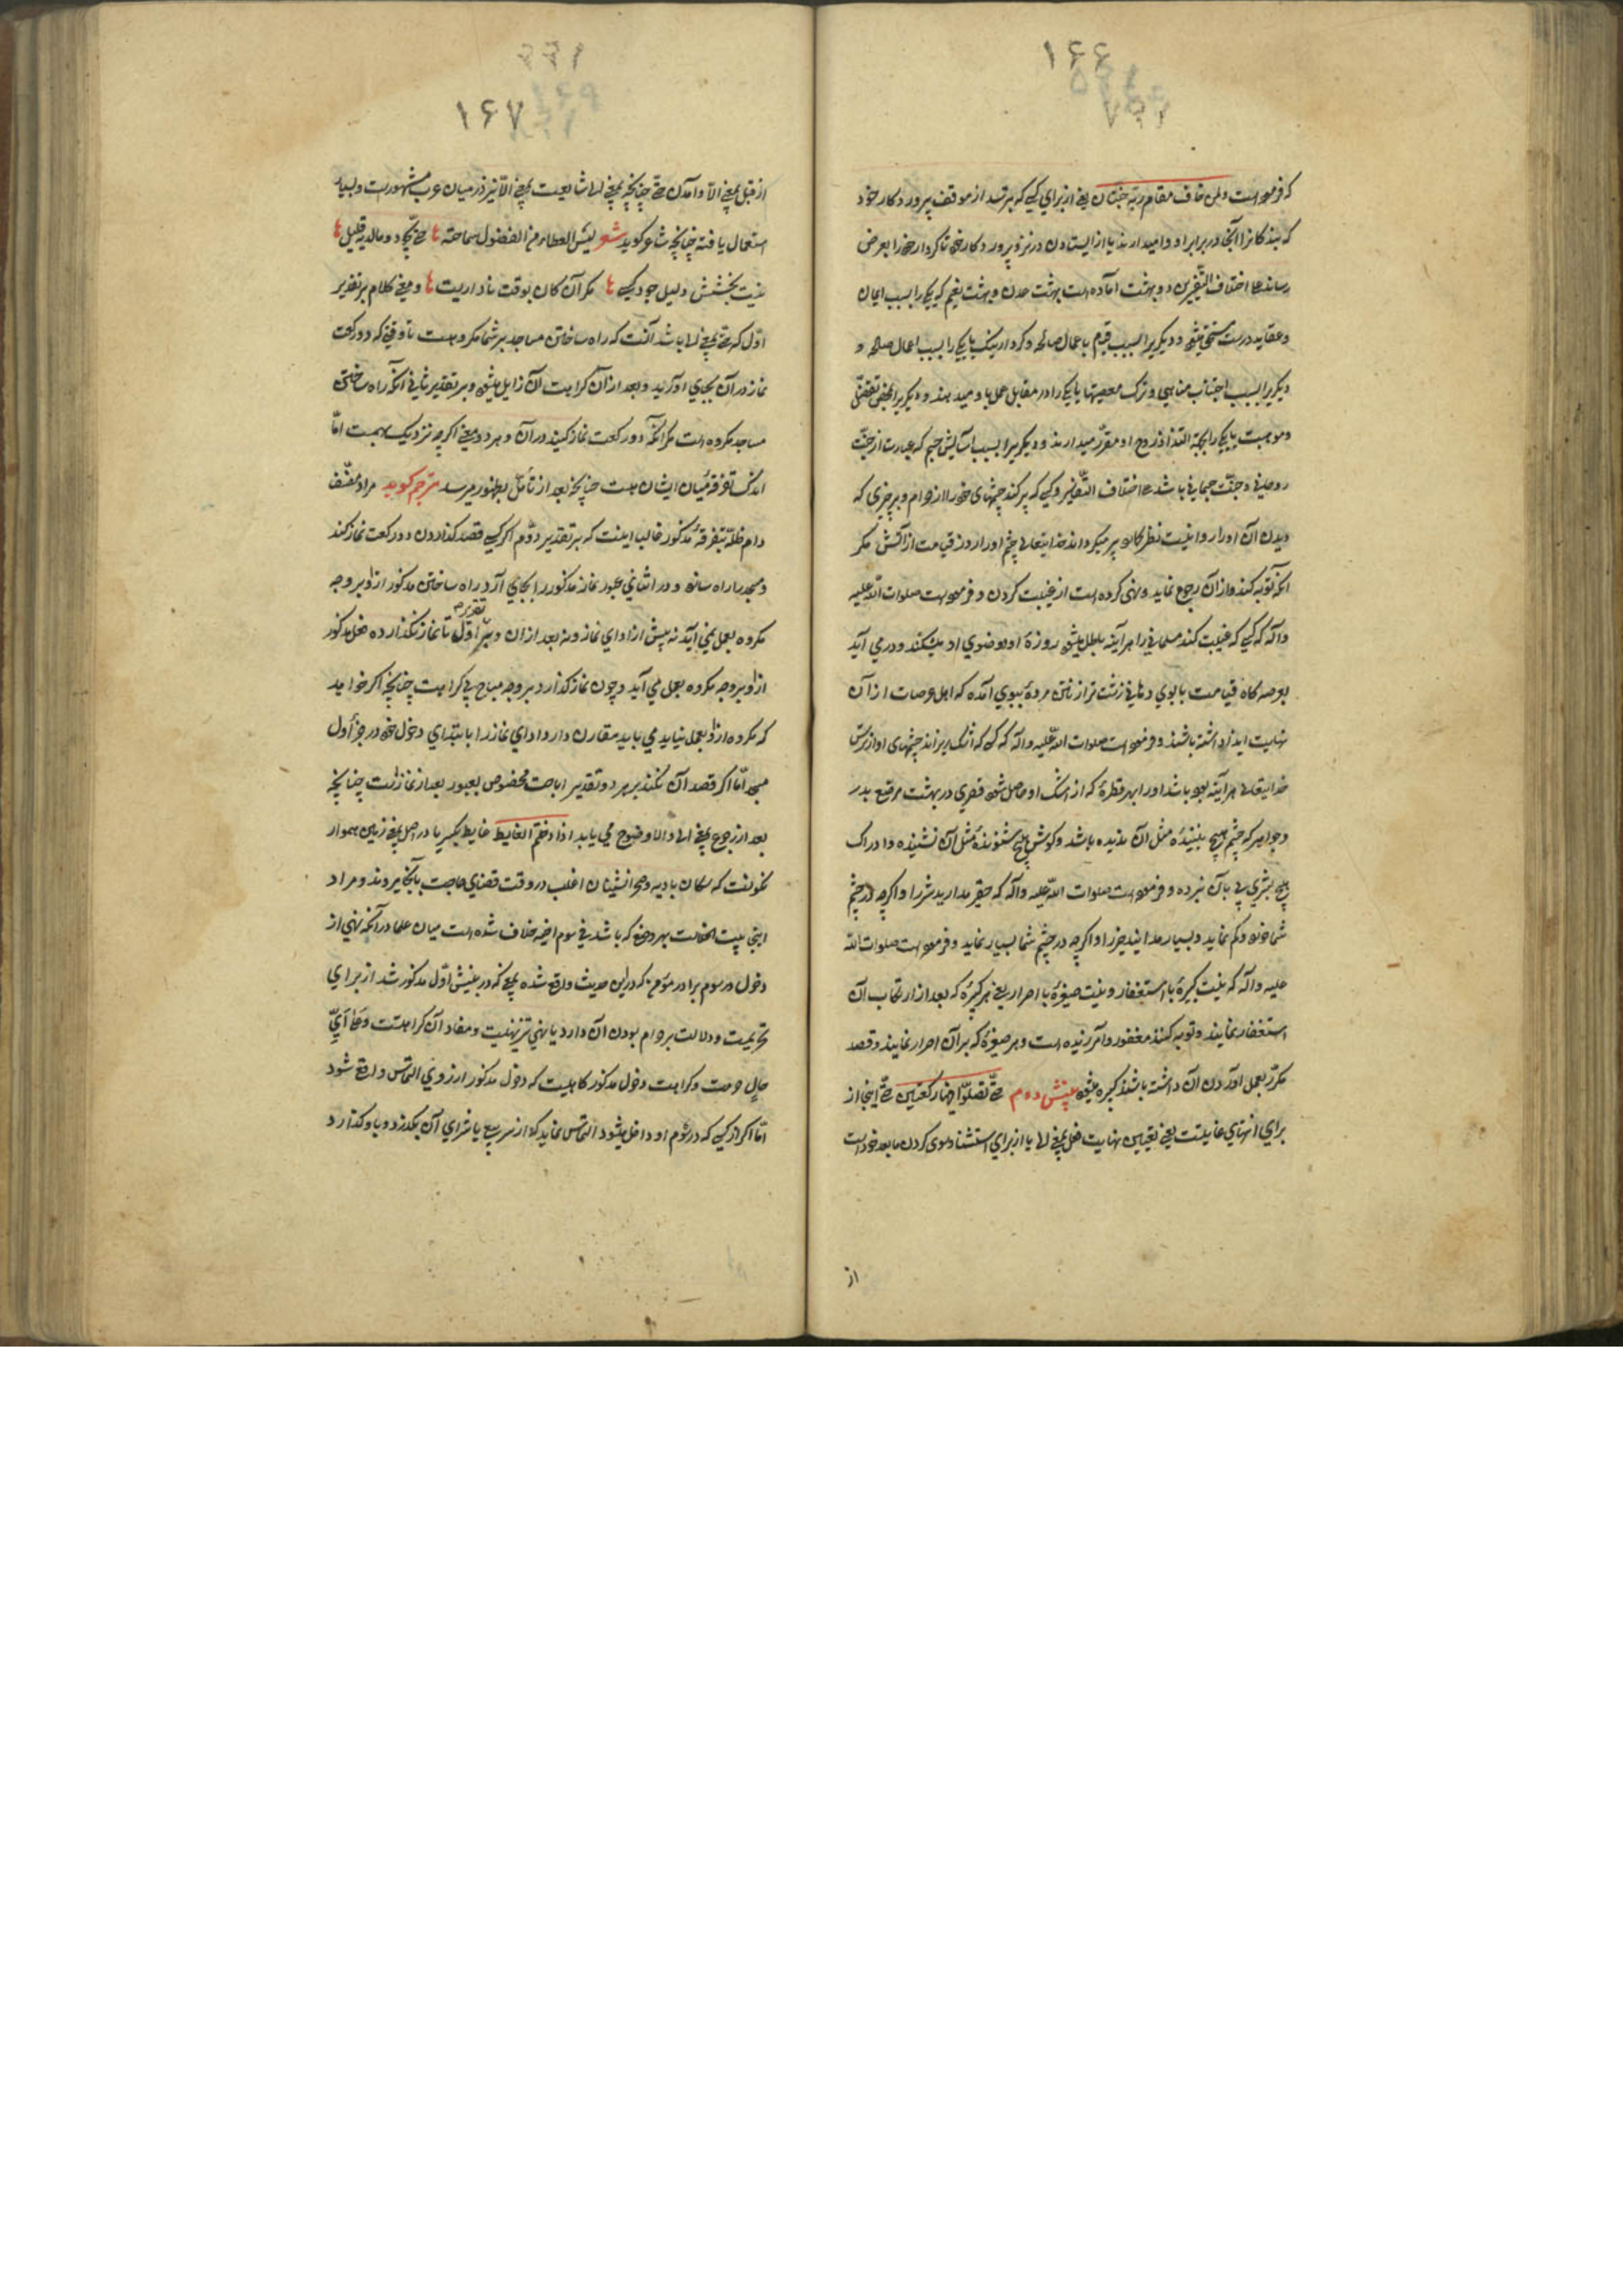 ۱۶۶
که فرموده است ولمن خاف مقام ربه جنتان یعنی از برای کسی که بترسد از موقف پروردکار خود
که بندکانرا آنجا در برابر او وامیدارند یا از ایستادن در نزد پروردکار خود تا کردار خود را بعرض
رساند علی اختلاف التفسیرین دو بهشت آماده است بهشت عدن و بهشت نعیم که یکی را بسبب ایمان
و عقاید درست مستحق میشود و دیکریرا بسبب قیام باعمال صالحه و کردار نیک یا یکی را بسبب اعمال صالحه و
دیکریرا بسبب اجتناب مناهی و ترک معصیتها یا یکی را در مقابل عمل باو میدهند و دیکریرا بمحض تفضل
و موهبت یا یکی را بجهة التذاذ روح او مقرر میدارند و دیکریرا بسبب آسایش جسم که عبارت از جنت
روحانی و جنت جسمانی باشد علی اختلاف التفاسیر و کسی که پر کند چشمهای خود را از حرام و بر چیزی که
دیدن آن او را روا نیست نظر کند پر میکرداند خدایتعالی چشم او را روز قیامت از آتش مکر
آنکه توبه کند و از آن رجوع نماید و نهی کرده است از غیبت کردن و فرموده است صلوات الله علیه
و آله که کسی که غیبت کند مسلمانی را هر آینه باطل میشود روزهٔ او و وضوی او میشکند و در می آید
بعرصه کاه قیامت با بوی دهانی زشت تر از نتن مردهٔ ببوی آمده که اهل عرصات از آن
نهایت ایذا داشته باشند و فرموده است صلوات الله علیه و آله که کسی که اشک بریزاند چشمهای او از ترس
خدایتعالی هر آینه بوده باشد او را بهر قطرهٔ که از اشک او حاصل شود قصری در بهشت مرصع بدر
و جواهر که چشم هیچ بینندهٔ مثل آن ندیده باشد و کوش هیچ شنوندهٔ مثل آن نشنیده و ادراک
هیچ بشری پی بآن نبرده و فرموده است صلوات الله علیه و آله که حقیر مدارید شر را و اکرچه در چشم
شما خورد و کم نماید و بسیار مدانید خیر را و اکرچه در چشم شما بسیار نماید و فرموده است صلوات الله
علیه و آله که نیست کبیرهٔ با استغفار و نیست صغیرهٔ با اصرار یعنی هر کبیرهٔ که بعد از ارتکاب آن
استغفار نمایند و توبه کنند مغفور و آمرزیده است و هر صغیرهٔ که بر آن اصرار نمایند و قصد
مکرر بعمل آوردن آن داشته باشند کبیره میشود بینش دوم حتی تصلوا فیها رکعتین حتی اینجا از
برای انتهای غایتست یعنی تعیین نهایت فعل بمعنی الی یا از برای استثنا و سوی کردن ما بعد خود است
از
۱۶۷
از قبل بمعنی الا و آمدن حتی چنانچه بمعنی الی شایعست بمعنی الا نیز در میان عرب مشهورست و بسیار
استعمال یافته چنانچه شاعر کوید شعر لیس العطاء من الفضول سماحة حتی تجود و ما لدیک قلیل
نیست بخشش دلیل جود کسی مکر آن کان بوقت ناداریست و معنی کلام بر تقدیر
اول که حتی بمعنی الی باشد آنست که راه ساختن مساجد بر شما مکروهست تا وقتی که دو رکعت
نماز در آن بجای آورید و بعد از آن کراهت آن زایل میشود و بر تقدیر ثانی آنکه راه ساختن
مساجد مکروه است مکر آنکه دو رکعت نماز کنید در آن و هر دو معنی اکرچه نزدیک بهمست اما
اندک تفرقهٔ میان ایشان هست چنانچه بعد از تأمل بظهور میرسد مترجم کوید مراد مصنف
دام ظله بتفرقهٔ مذکور غالبا اینست که بر تقدیر دوم اکر کسی قصد کذاردن دو رکعت نماز کند
و مسجد را راه سازد و در اثنای عبور نماز مذکور را بجای آرد راه ساختن مذکور ازو بر وجه
مکروه بعمل نمی آید نه پیش از ادای نماز و نه بعد از آن و بر تقدیر اول تا نماز نکذارده فعل مذکور
ازو بر وجه مکروه بعمل می آید و چون نماز کذارد بر وجه مباح بی کراهت چنانچه اکر خواهد
که مکروه ازو بعمل نیاید می باید مقارن دارد ادای نماز را با ابتدای دخول خود در جزء اول
مسجد اما اکر قصد آن نکند بر هر دو تقدیر اباحت مخصوص بعبور بعد از نماز است چنانچه
بعد از رجوع بمعنی الی و الا وضوح می یابد اذا دخلتم الغایط غایط بکسر یا در اصل بمعنی زمین هموار
نکونست که سکان بادیه و صحرانشینان اغلب در وقت قضای حاجت بآنجا میروند و مراد
اینجا بیت الخلاست بهر وضع که باشد فی سوم اخیه خلاف شده است میان علما در آنکه نهی از
دخول در سوم برادر مؤمن که درین حدیث واقع شده بمعنی که در بینش اول مذکور شد از برای
تحریمست و دلالت بر حرام بودن آن دارد یا نهی تنزیهیست و مفاد آن کراهتست و علی ای
حال حرمت و کراهت دخول مذکور کاهیست که دخول مذکور از روی التماس واقع شود
اما اکر از کسی که در سوم او داخل میشود التماس نماید که از سر بیع یا شرای آن بکذرد و باو کذارد